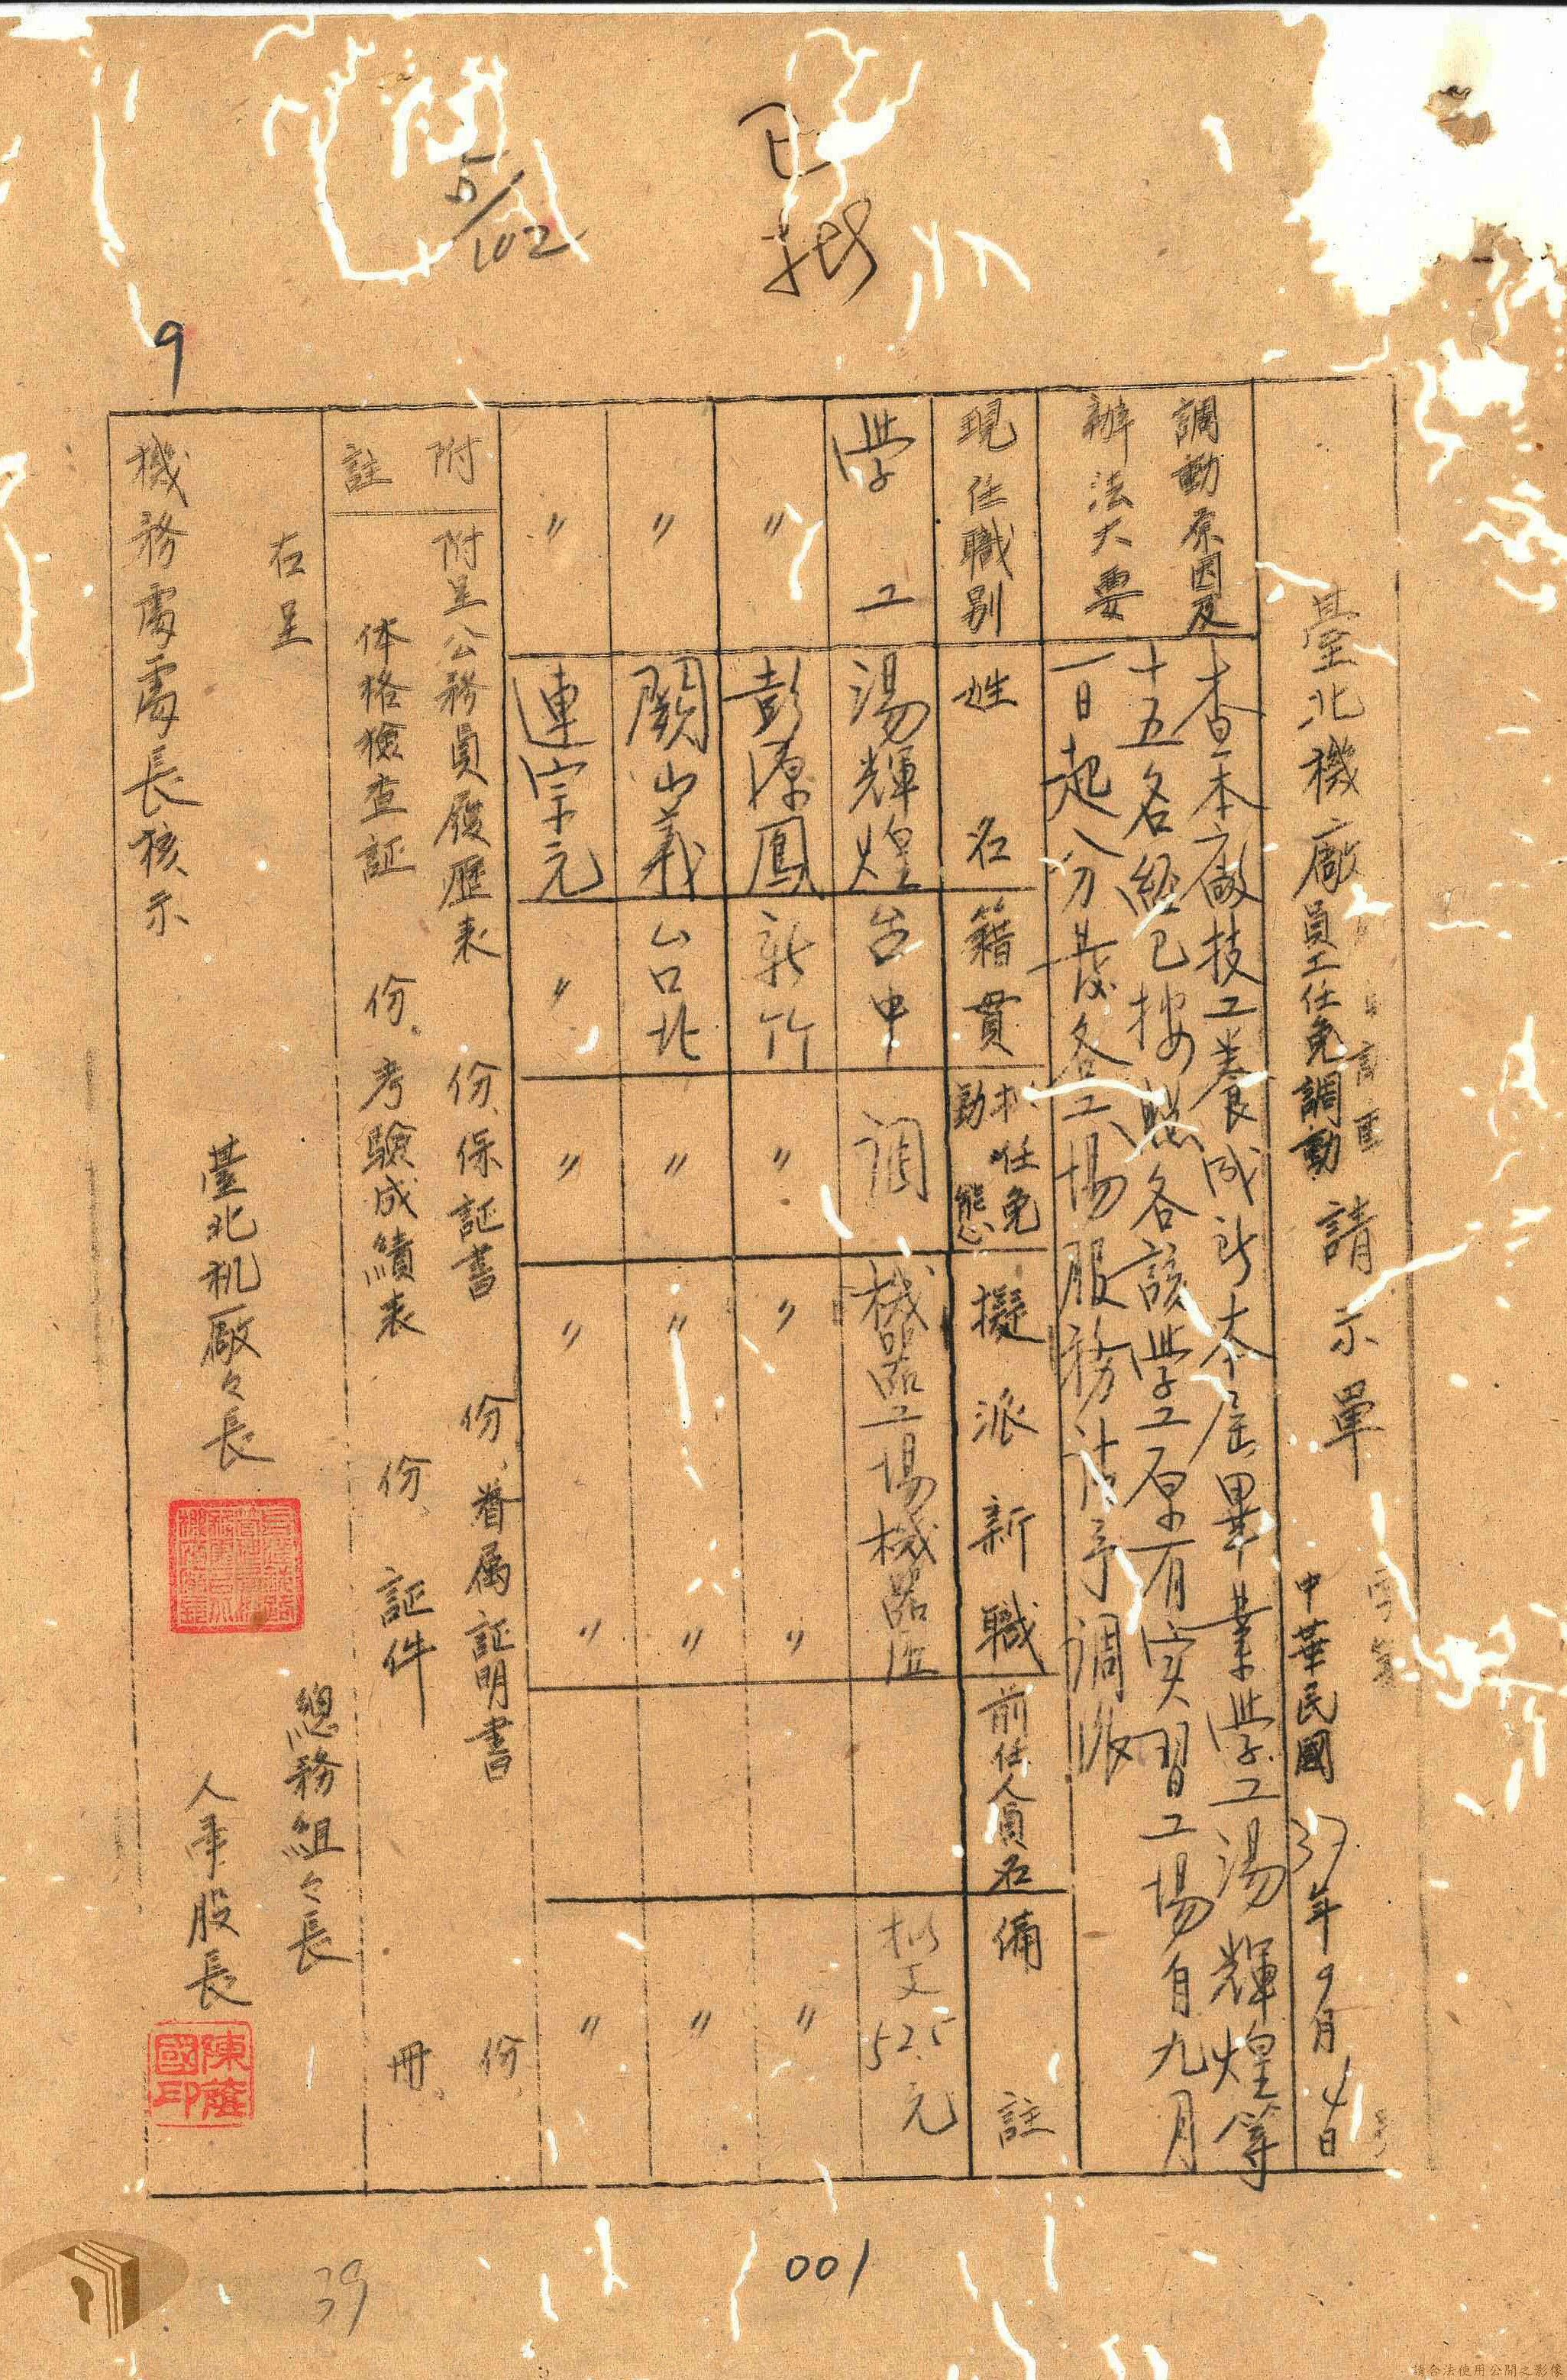 已批
5/102
9
臺北機廠員工任免調動請示單
中華民國37年9月4日
調動原因及
辦法大要
查本廠技工養成所本屆畢業學工湯輝煌等
十五名經已按照各該學工原有実習工場自九月
一日起分發各工場服務請予调派
現任職別 姓名 籍貫 任免動態 擬派新職 前任人員名 備註
学工 湯輝煌 台中 调 機器工場機器匠 拟支525元
〃 彭源鳳 新竹 〃 〃 〃 〃
〃 闕山義 台北 〃 〃 〃 〃
〃 連宗元 〃 〃 〃 〃 〃
附註
附呈公務員履歷表 份、保証書 份、眷属証明書 份、
体格檢查証 份、考驗成績表 份、証件 冊、
右呈
機務處處長核示
臺北机廠々長
總務組々長
人事股長
001
39
請合法使用公開之影像